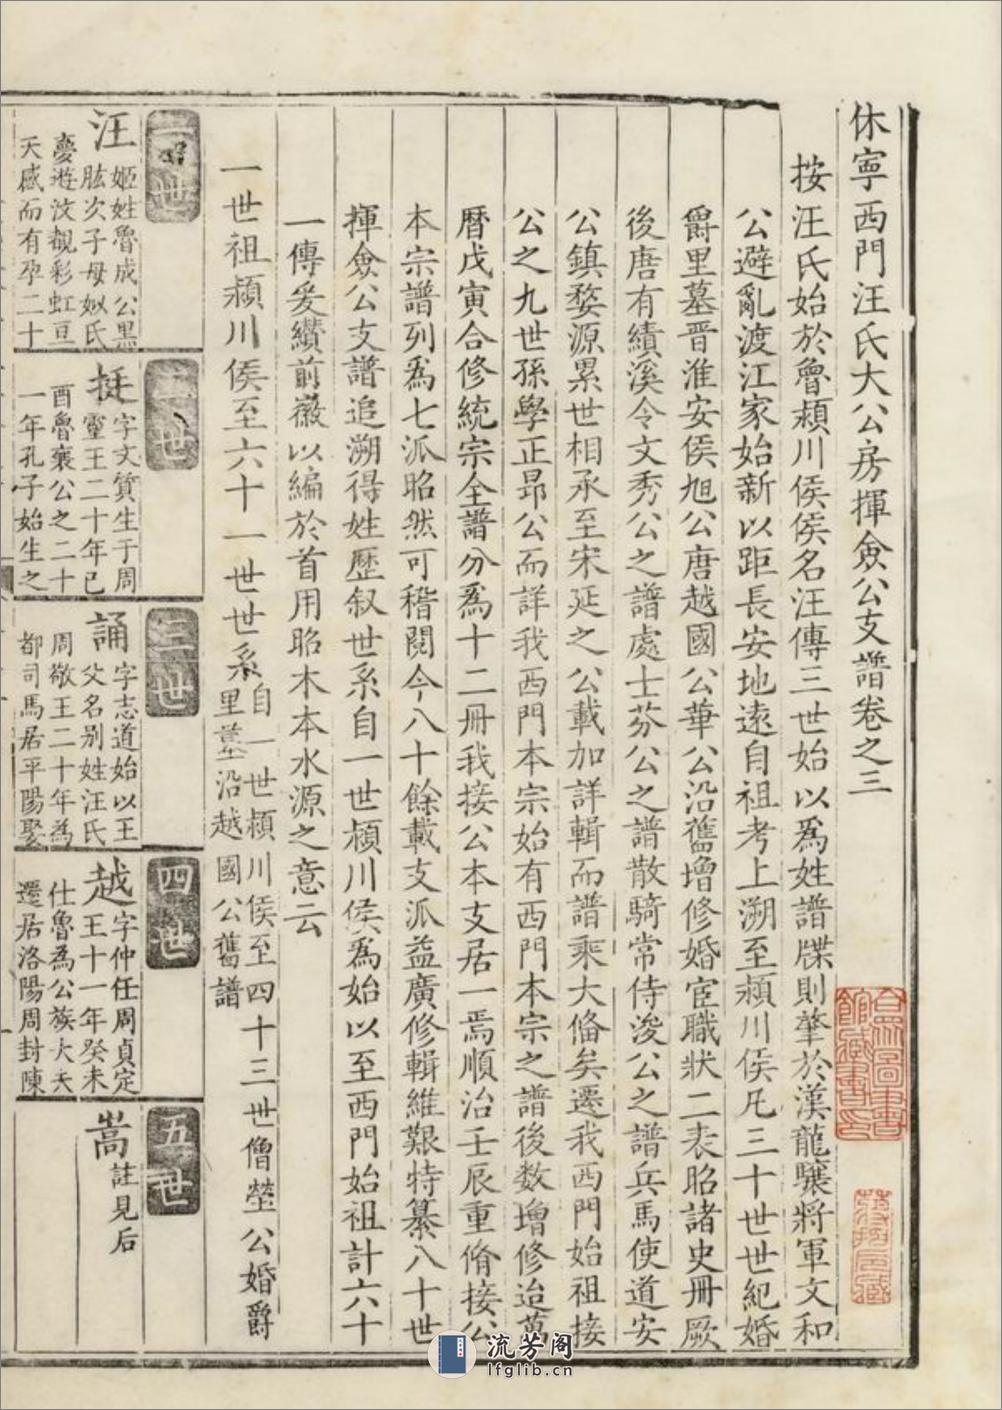 休寧西門汪氏大公房揮僉公支譜卷之三
按汪氏始於魯潁川侯侯名汪傳三世始以爲姓譜牒則肇於漢龍驤將軍文和
公避亂渡江家始新以距長安地遠自祖考上溯至潁川侯凡三十世世紀婚
爵里墓晉淮安侯旭公唐越國公華公沿舊增修婚宦職狀二表昭諸史冊厥
後唐有績溪令文秀公之譜處士芬公之譜散騎常侍浚公之譜兵馬使道安
公鎮婺源累世相承至宋延之公載加詳輯而譜乘大俻矣遷我西門始祖接
公之九世孫學正昂公而詳我西門本宗始有西門本宗之譜後数增修迨萬
曆戊寅合修統宗全譜分爲十二冊我接公本支居一焉順治壬辰重脩接公
本宗譜列爲七派昭然可稽閱今八十餘載支派益廣修輯維艱特纂八十世
揮僉公支譜追溯得姓歷叙世系自一世潁川侯爲始以至西門始祖計六十
一傳爰纘前徽以編於首用昭木本水源之意云
一世祖潁川侯至六十一世世系自一世潁川侯至四十三世僧瑩公婚爵
里墓沿越國公舊譜
一世
汪
姬姓魯成公黑
肱次子母姒氏
夢遊汶觀彩虹亘
天感而有孕二十
二世
挺
字文質生于周
靈王二十年己
酉魯襄公之二十
一年孔子始生之
三世
誦
字志道始以王
父名别姓汪氏
周敬王二十年為
都司馬居平陽娶
四世
越
字仲任周貞定
王十一年癸未
仕魯為公族大夫
遷居洛陽周封陳
五世
嵩
註見后
流芳阁
lfglib.cn